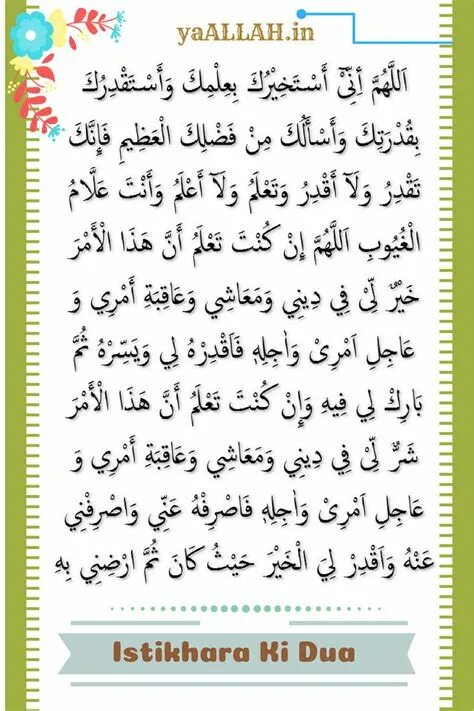 yaALLAH.in
اَللّٰهُمَّ اِنِّیْٓ أَسْتَخِيْرُكَ بِعِلْمِكَ وَأَسْتَقْدِرُكَ
بِقُدْرَتِكَ وَأَسْأَلُكَ مِنْ فَضْلِكَ الْعَظِيمِ فَإِنَّكَ
تَقْدِرُ وَلَآ أَقْدِرُ وَتَعْلَمُ وَلَآ أَعْلَمُ وَأَنْتَ عَلَّامُ
الْغُيُوبِ اَللّٰهُمَّ إِنْ كُنْتَ تَعْلَمُ أَنَّ هَذَا الْأَمْرَ
خَيْرٌ لِّیْ فِي دِينِي وَمَعَاشِي وَعَاقِبَةِ أَمْرِي وَ
عَاجِلِ اَمْرِیْ وَاٰجِلِهٖ فَاَقْدِرْهُ لِي وَيَسِّرْهُ ثُمَّ
بَارِكْ لِي فِيهِ وَإِنْ كُنْتَ تَعْلَمُ أَنَّ هَذَا الْأَمْرَ
شَرٌّ لِّیْ فِي دِينِي وَمَعَاشِي وَعَاقِبَةِ أَمْرِي وَ
عَاجِلِ اَمْرِیْ وَاٰجِلِهٖ فَاصْرِفْهُ عَنِّي وَاصْرِفْنِي
عَنْهُ وَاَقْدِرْ لِيَ الْخَيْرَ حَيْثُ كَانَ ثُمَّ ارْضِنِي بِهِ
Istikhara Ki Dua